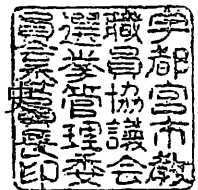 宇都宮市教
職員協議会
選挙管理委
員長印